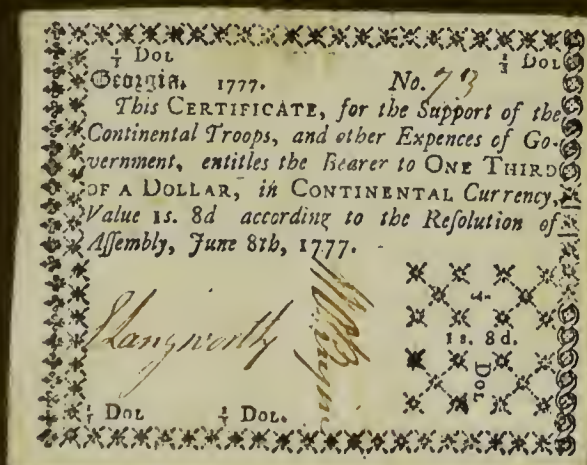 ⅓ Dol ⅓ Dol
Georgia, 1777. No. 73
This CERTIFICATE, for the Support of the
Continental Troops, and other Expences of Go-
vernment, entitles the Bearer to ONE THIRD
OF A DOLLAR, in CONTINENTAL Currency,
Value 1s. 8d according to the Reſolution of
Aſſembly, June 8th, 1777.
Langworthy
1s. 8d.
Dol
⅓ Dol ⅓ Dol.